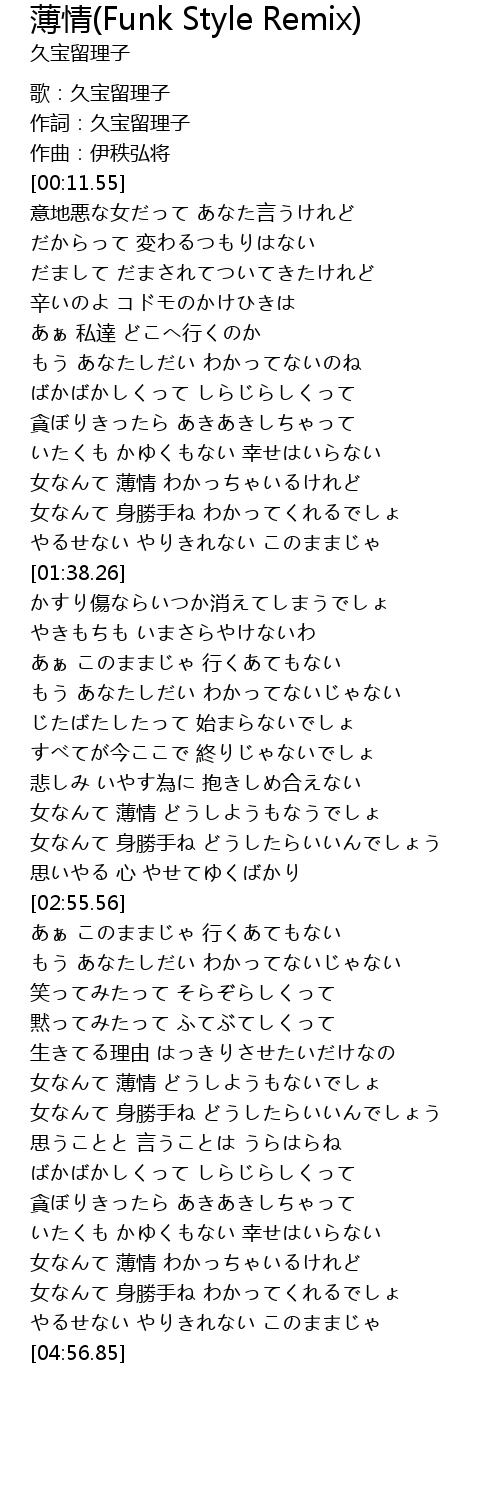 薄情(Funk Style Remix)
久宝留理子
歌：久宝留理子
作詞：久宝留理子
作曲：伊秩弘将
[00:11.55]
意地悪な女だって あなた言うけれど
だからって 変わるつもりはない
だまして だまされてついてきたけれど
辛いのよ コドモのかけひきは
あぁ 私達 どこへ行くのか
もう あなたしだい わかってないのね
ばかばかしくって しらじらしくって
貪ぼりきったら あきあきしちゃって
いたくも かゆくもない 幸せはいらない
女なんて 薄情 わかっちゃいるけれど
女なんて 身勝手ね わかってくれるでしょ
やるせない やりきれない このままじゃ
[01:38.26]
かすり傷ならいつか消えてしまうでしょ
やきもちも いまさらやけないわ
あぁ このままじゃ 行くあてもない
もう あなたしだい わかってないじゃない
じたばたしたって 始まらないでしょ
すべてが今ここで 終りじゃないでしょ
悲しみ いやす為に 抱きしめ合えない
女なんて 薄情 どうしようもなうでしょ
女なんて 身勝手ね どうしたらいいんでしょう
思いやる 心 やせてゆくばかり
[02:55.56]
あぁ このままじゃ 行くあてもない
もう あなたしだい わかってないじゃない
笑ってみたって そらぞらしくって
黙ってみたって ふてぶてしくって
生きてる理由 はっきりさせたいだけなの
女なんて 薄情 どうしようもないでしょ
女なんて 身勝手ね どうしたらいいんでしょう
思うことと 言うことは うらはらね
ばかばかしくって しらじらしくって
貪ぼりきったら あきあきしちゃって
いたくも かゆくもない 幸せはいらない
女なんて 薄情 わかっちゃいるけれど
女なんて 身勝手ね わかってくれるでしょ
やるせない やりきれない このままじゃ
[04:56.85]